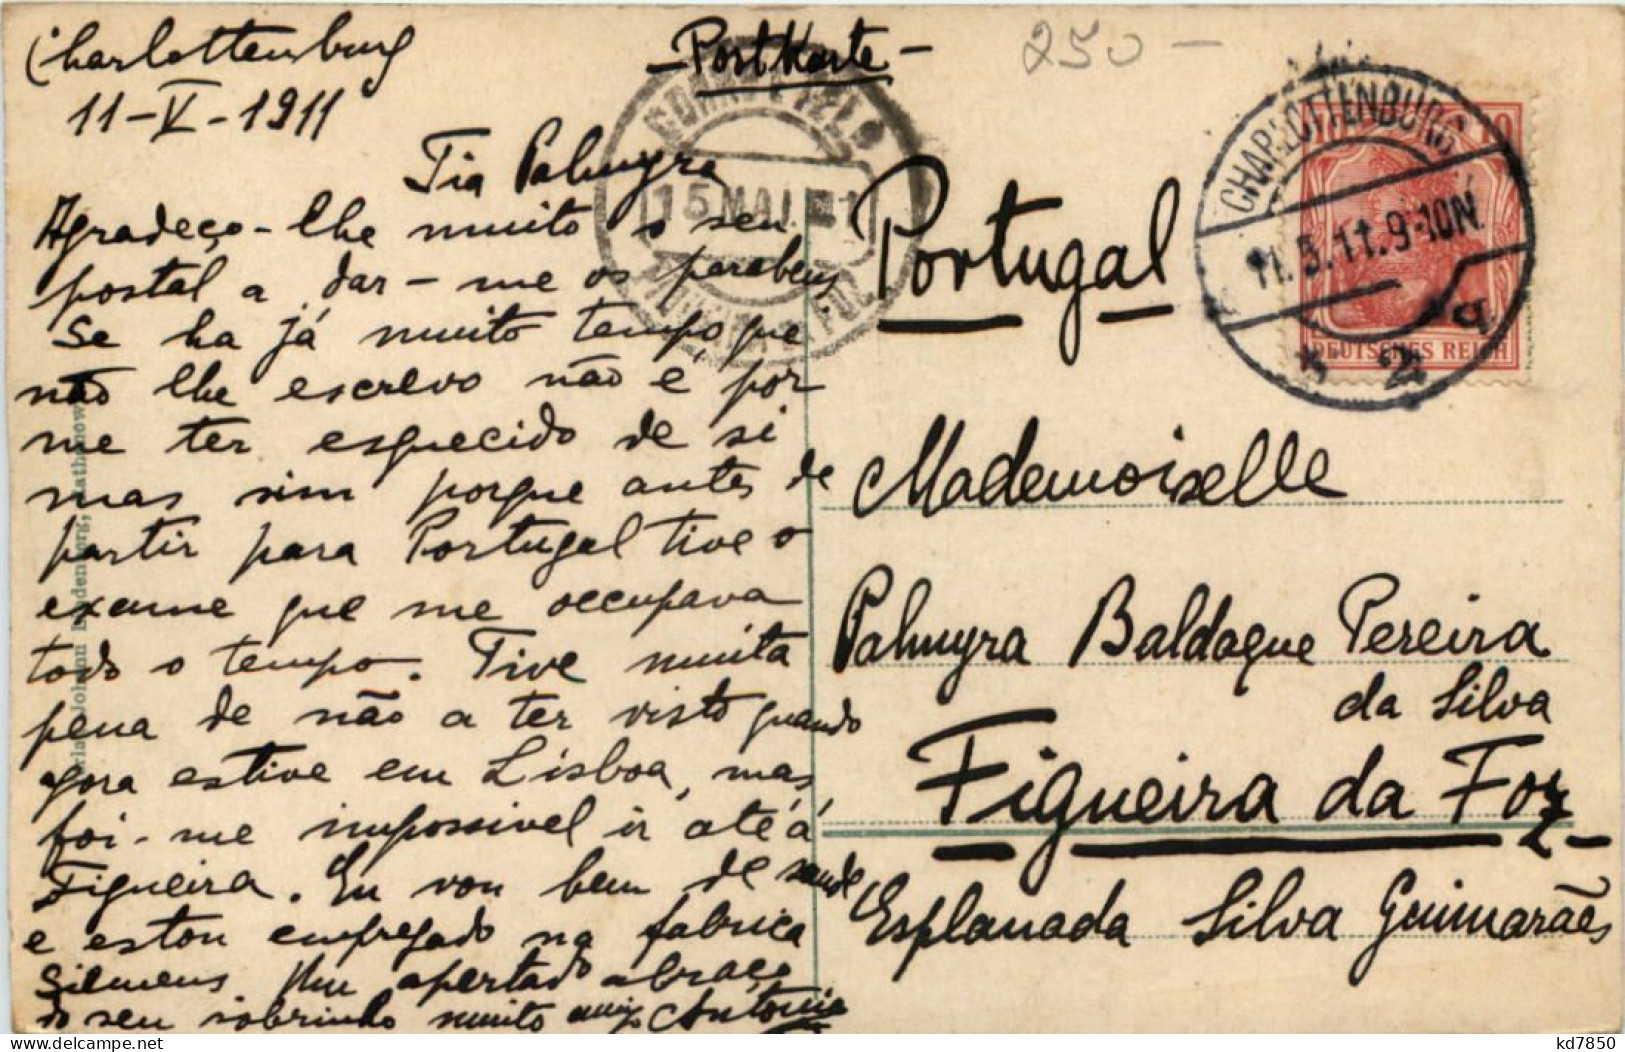 Charlottenburg
11-V-1911
-Postkarte-
250-
Tia Palmyra
Agradeço-lhe muito o seu
postal a dar-me os parabens
Se ha já muito tempo que
não lhe escrevo não é por
me ter esquecido de si
mas sim porque antes de
partir para Portugal tive o
exame que me occupava
todo o tempo. Tive muita
pena de não a ter visto quando
agora estive em Lisboa, mas
foi-me impossivel ir até á
Figueira. Eu vou bem de saude
e estou empregado na fabrica
Siemens Um apertado abraço
do seu sobrinho muito amigo Antonio
Portugal
Mademoiselle
Palmyra Baldaque Pereira
da Silva
Figueira da Foz-
Esplanada Silva Guimarães
CHARLOTTENBURG
11.5.11.9-10N.
2
q
10
DEUTSCHES REICH
15 MAI 11
kd7850